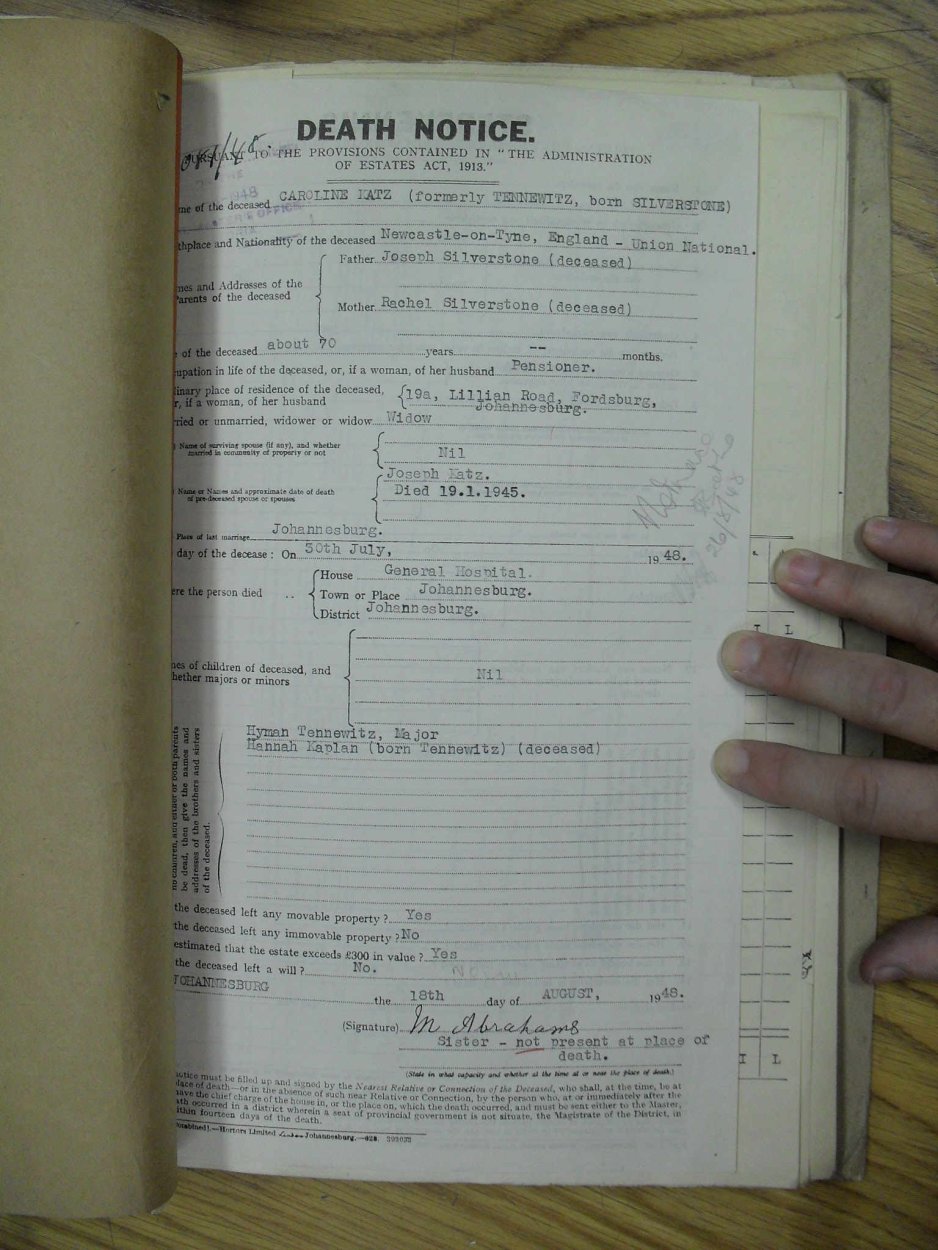 DEATH NOTICE.
PURSUANT TO THE PROVISIONS CONTAINED IN "THE ADMINISTRATION
OF ESTATES ACT, 1913."
me of the deceased CAROLINE KATZ (formerly TENNEWITZ, born SILVERSTONE)
thplace and Nationality of the deceased Newcastle-on-Tyne, England - Union National.
mes and Addresses of the
Parents of the deceased
Father Joseph Silverstone (deceased)
Mother Rachel Silverstone (deceased)
of the deceased about 70 years -- months.
upation in life of the deceased, or, if a woman, of her husband Pensioner.
linary place of residence of the deceased,
r, if a woman, of her husband
19a, Lillian Road, Fordsburg,
Johannesburg.
rried or unmarried, widower or widow Widow
Name of surviving spouse (if any), and whether
married in community of property or not
Nil
Name or Names and approximate date of death
of pre-deceased spouse or spouses
Joseph Katz.
Died 19.1.1945.
Place of last marriage Johannesburg.
day of the decease: On 30th July, 1948.
ere the person died ..
House General Hospital.
Town or Place Johannesburg.
District Johannesburg.
mes of children of deceased, and
hether majors or minors
Nil
no children, and either or both parents
be dead, then give the names and
addresses of the brothers and sisters
of the deceased.
Hyman Tennewitz, Major
Hannah Kaplan (born Tennewitz) (deceased)
the deceased left any movable property? Yes
the deceased left any immovable property? No
estimated that the estate exceeds £300 in value? Yes
the deceased left a will? No.
JOHANNESBURG
the 18th day of AUGUST, 1948.
(Signature) M Abrahams
Sister - not present at place of
death.
(State in what capacity and whether at the time at or near the place of death.)
notice must be filled up and signed by the Nearest Relative or Connection of the Deceased, who shall, at the time, be at
place of death—or in the absence of such near Relative or Connection, by the person who, at or immediately after the
have the chief charge of the house in, or the place on, which the death occurred, and must be sent either to the Master,
ath occurred in a district wherein a seat of provincial government is not situate, the Magistrate of the District, in
ithin fourteen days of the death.
Hortors Limited Johannesburg.
I L
I L